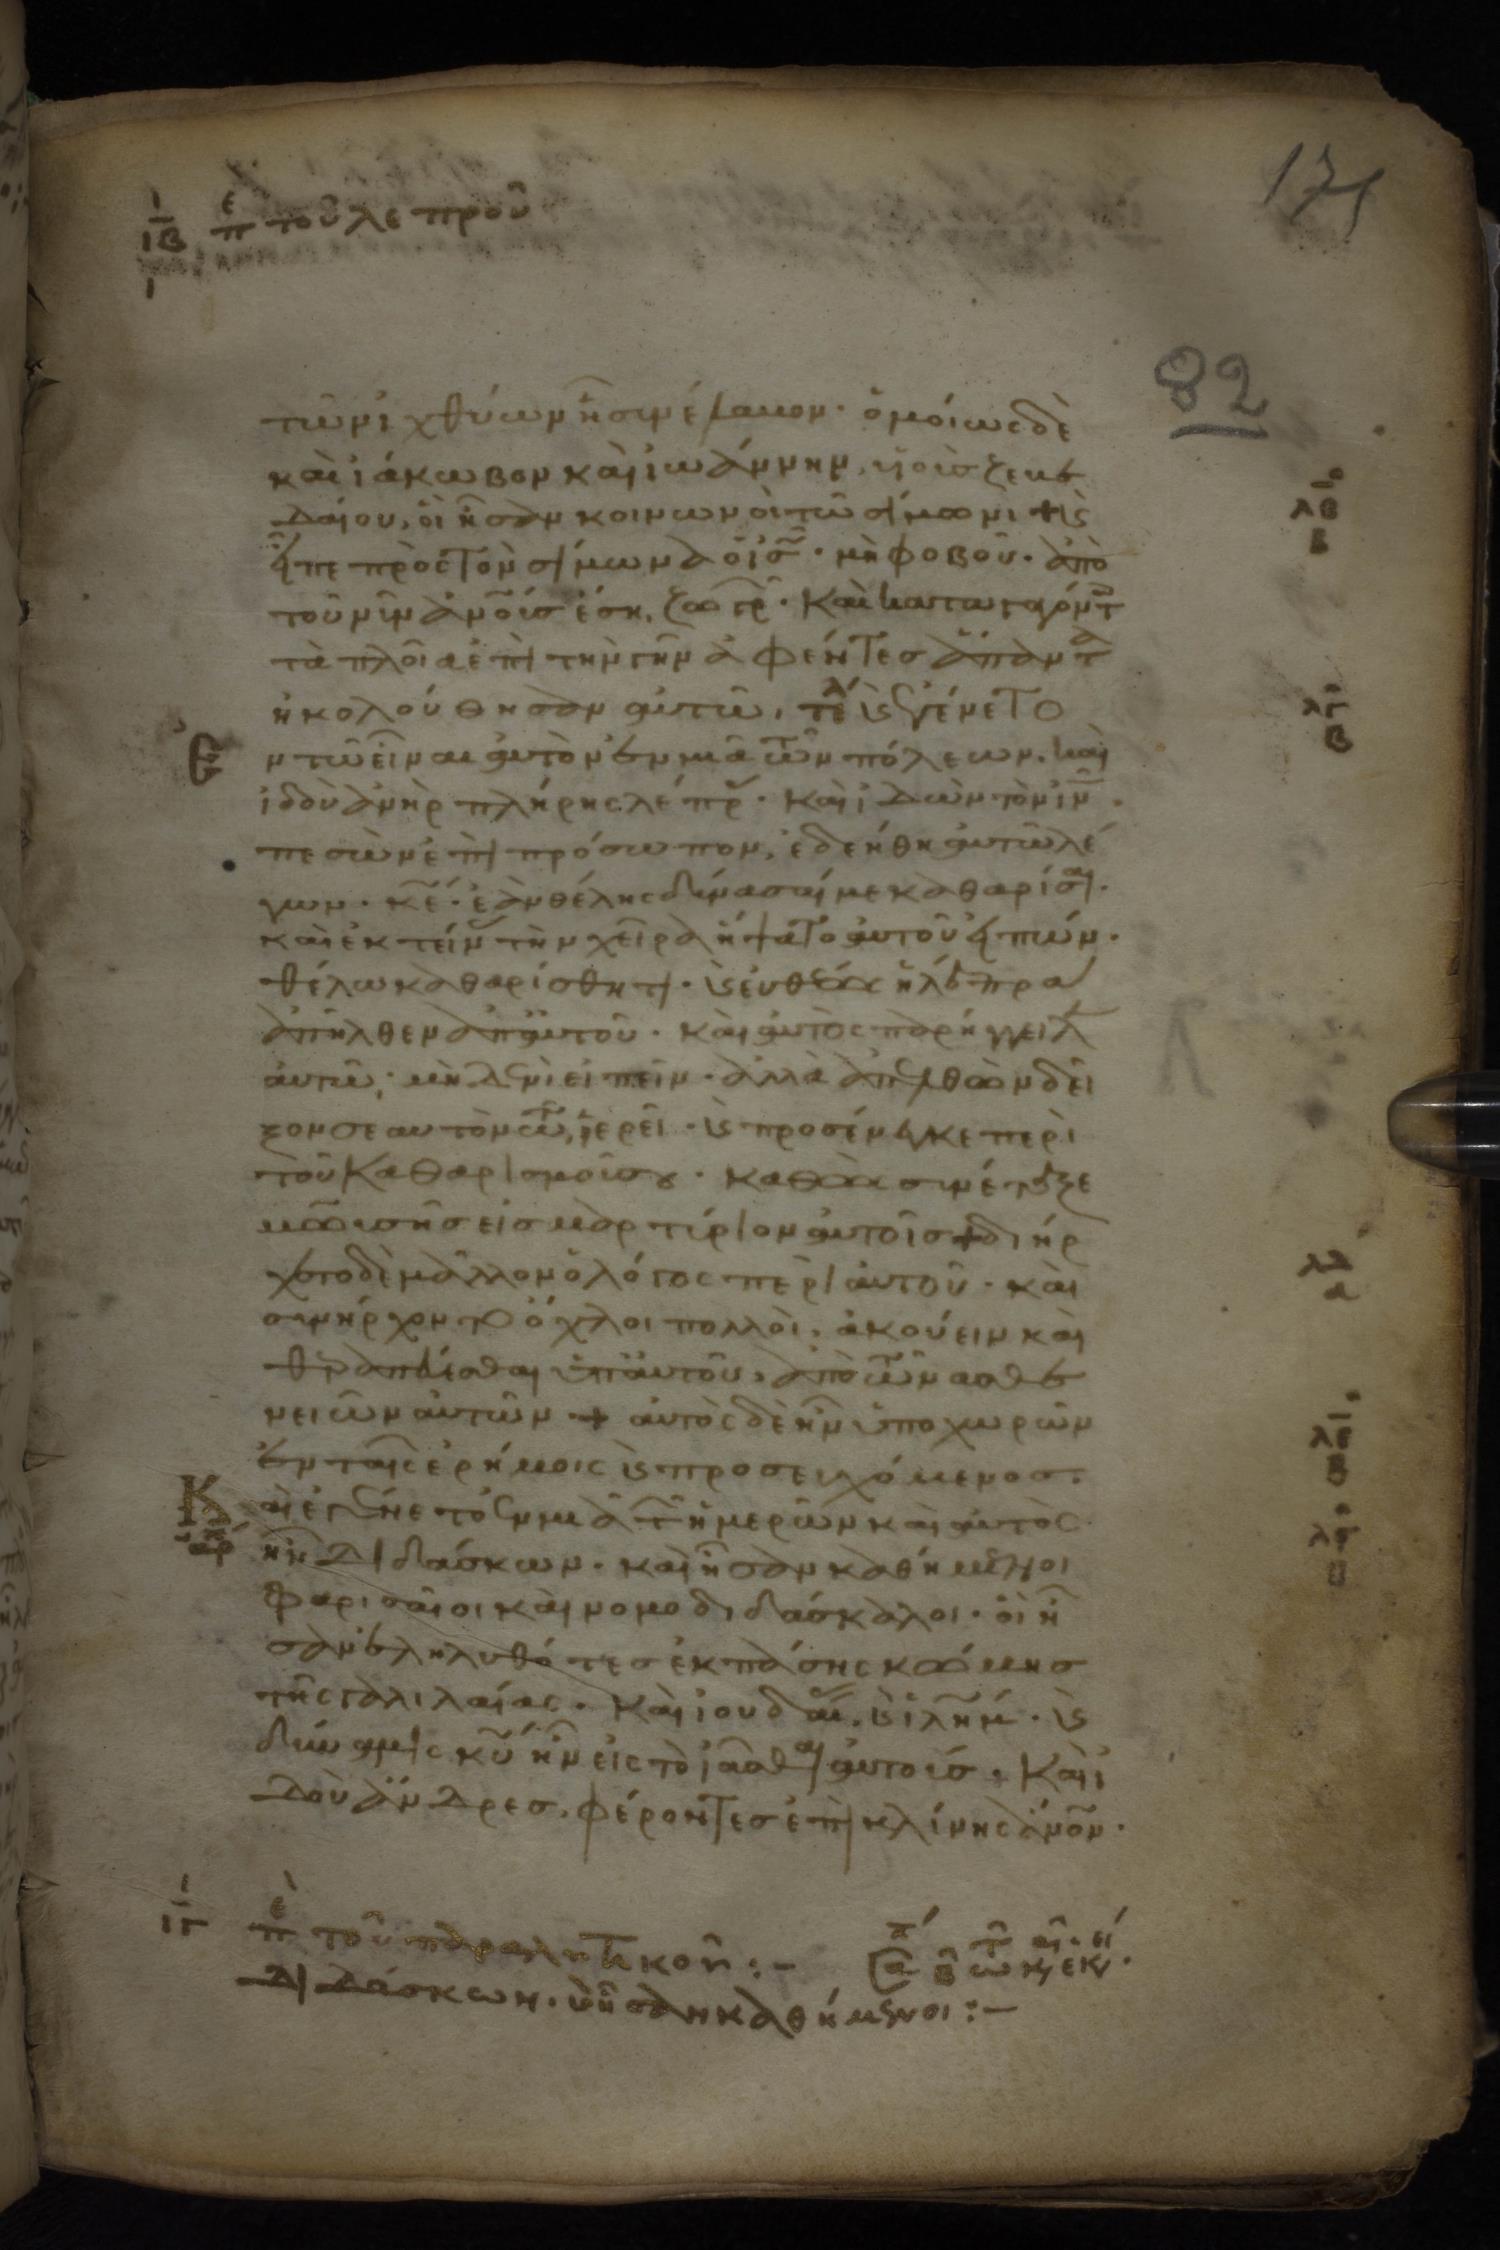 171
ιβ πε τοῦ λεπροῦ
82
τῶν ἰχθύων ἧ συνέλαβον· ὁμοίως δὲ
καὶ ἰάκωβον καὶ ἰωάννην, υἱοὺσ ζεβε
δαίου, οἳ ἦσαν κοινωνοὶ τῶ σίμωνι + κς
εἶπε πρὸς τὸν σίμωνα ὁ ισ̅· μὴ φοβοῦ· ἀπὸ
τοῦ νῦν ἀν̅οὺσ ἔση ζωγρ· Καὶ καταγαγόντ
τὰ πλοῖα ἐπὶ τὴν γῆν ἀφέντεσ ἅπαντ
ἠκολούθησαν αὐτῶ, τε κς ἐγένετο
ν τῶ εἶναι αὐτὸν ἐν μιᾶ τῶν πόλεων. καὶ
ἰδοὺ ἀνὴρ πλήρης λέπρ· Καὶ ἰδὼν τὸν ιν̅.
πεσὼν ἐπὶ πρόσωπον, ἐδεήθη αὐτῶ λέ
γων· κε̅· ἐὰν θέλης δύνασαί με καθαρίσαι·
καὶ ἐκτείν τὴν χεῖρα ἥψατο αὐτοῦ εἰπών·
θέλω καθαρίσθητι· κς εὐθέως ἡ λέπρα
ἀπῆλθεν ἀπ αὐτοῦ· καὶ αὐτὸς παρήγγειλ
αὐτῶ, μηδενὶ εἰπεῖν· ἀλλὰ ἀπελθὼν δεῖ
ξον σεαυτὸν τῶ ἱερεῖ· κς προσένεγκε περὶ
τοῦ Καθαρισμοῦ σου· καθὼς συνέταξε
μωσῆσ εἰσ μαρτύριον αὐτοῖσ + διήρ
χετο δὲ μᾶλλον ὁ λόγος περὶ αὐτοῦ· καὶ
συνήρχοντο ὄχλοι πολλοὶ, ἀκούειν καὶ
θεραπεύεσθαι ὑπ αὐτοῦ, ἀπὸ τῶν ασθε
νειῶν αὐτῶν + αὐτὸς δὲ ἦν ὑποχωρῶν
ἐν ταῖς ἐρήμοις κς προσευχόμενοσ.
Καὶ ἐγένετο ἐν μιᾶ τ ἡμερῶν καὶ αὐτὸς
ἦν διδάσκων· καὶ ἦσαν καθήμενοι
Φαρισαῖοι καὶ νομοδιδάσκαλοι· οἳ ἦ
σαν ἐληλυθότεσ ἐκ πάσης κώμησ
τῆς γαλιλαίας· Καὶ ἰουδαί, κς ἱλημ̅· κς
δύναμις κυ̅ ἦν εἰς τὸ ἰᾶσθαι αὐτούσ. Καὶ ἰ
δοὺ ἄνδρεσ, φέροντεσ ἐπὶ κλίνης ἀν̅ον·
λβ
β
λγ
β
λδ
α
λε
β
λϛ
ιγ πε τοῦ παραλυτικοῦ:–
διδάσκων· κς ἦσαν καθήμενοι:–